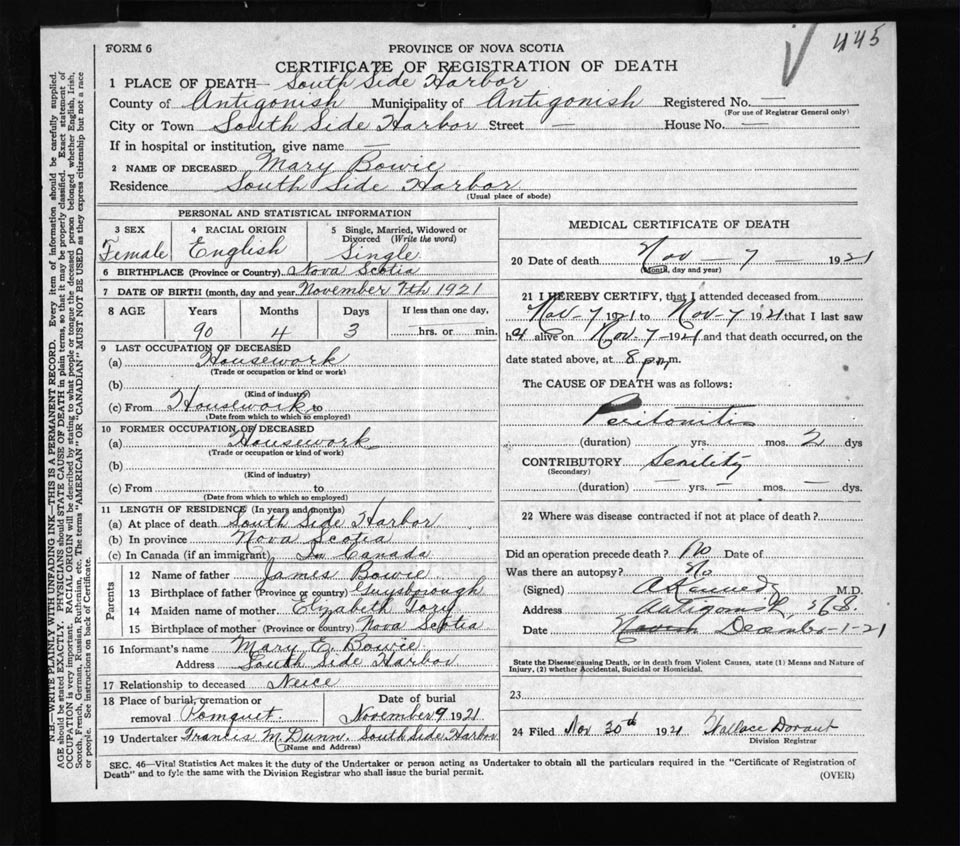 445
FORM 6
PROVINCE OF NOVA SCOTIA
CERTIFICATE OF REGISTRATION OF DEATH
1 PLACE OF DEATH— South Side Harbor
County of Antigonish Municipality of Antigonish Registered No. —
(For use of Registrar General only)
City or Town South Side Harbor Street — House No. —
If in hospital or institution, give name —
2 NAME OF DECEASED Mary Bowie
Residence South Side Harbor
(Usual place of abode)
PERSONAL AND STATISTICAL INFORMATION
3 SEX Female
4 RACIAL ORIGIN English
5 Single, Married, Widowed or Divorced (Write the word) Single
6 BIRTHPLACE (Province or Country) Nova Scotia
7 DATE OF BIRTH (month, day and year November 7th 1921
8 AGE Years Months Days If less than one day,
90 4 3 hrs. or min.
9 LAST OCCUPATION OF DECEASED
(a) Housework
(Trade or occupation or kind or work)
(b)
(Kind of industry)
(c) From Housework to
(Date from which to which so employed)
10 FORMER OCCUPATION OF DECEASED
(a) Housework
(Trade or occupation or kind of work)
(b)
(Kind of industry)
(c) From to
(Date from which to which so employed)
11 LENGTH OF RESIDENCE (In years and months)
(a) At place of death South Side Harbor
(b) In province Nova Scotia
(c) In Canada (if an immigrant) In Canada
Parents
12 Name of father James Bowie
13 Birthplace of father (Province or country) Guysborough
14 Maiden name of mother Elizabeth Torey
15 Birthplace of mother (Province or country) Nova Scotia
16 Informant's name Mary E. Bowie
Address South Side Harbor
17 Relationship to deceased Neice
18 Place of burial, cremation or removal Pomquet.
Date of burial November 9 1921
19 Undertaker Francis M. Dunn. South Side Harbor
(Name and Address)
MEDICAL CERTIFICATE OF DEATH
20 Date of death Nov — 7 — 1921
(Month, day and year)
21 I HEREBY CERTIFY, that I attended deceased from
Nov-7 1921 to Nov-7 1921 that I last saw
h alive on Nov. 7 -1921 and that death occurred, on the
date stated above, at 8 pm m.
The CAUSE OF DEATH was as follows:
Peritonitis
(duration) yrs. mos. 2 dys
CONTRIBUTORY Senility
(Secondary)
(duration) — yrs. — mos. — dys.
22 Where was disease contracted if not at place of death?
Did an operation precede death? No Date of
Was there an autopsy? No
(Signed) M.D.
Address Antigonish,
Date December-1-21
State the Disease causing Death, or in death from Violent Causes, state (1) Means and Nature of
Injury, (2) whether Accidental, Suicidal or Homicidal.
23
24 Filed Nov 30th 1921 Wallace
Division Registrar
SEC. 46—Vital Statistics Act makes it the duty of the Undertaker or person acting as Undertaker to obtain all the particulars required in the "Certificate of Registration of
Death" and to fyle the same with the Division Registrar who shall issue the burial permit.
(OVER)
N.B.—WRITE PLAINLY WITH UNFADING INK—THIS IS A PERMANENT RECORD. Every item of information should be carefully supplied.
AGE should be stated EXACTLY. PHYSICIANS should STATE CAUSE OF DEATH in plain terms, so that it may be properly classified. Exact statement of
OCCUPATION is very important. RACIAL ORIGIN will be described by stating to what people or tongue the deceased person belonged, whether English, Irish,
Scotch, French, German, Russian, Ruthenian, etc. The terms "AMERICAN" OR "CANADIAN" MUST NOT BE USED as they express citizenship but not a race
or people. See instructions on back of Certificate.